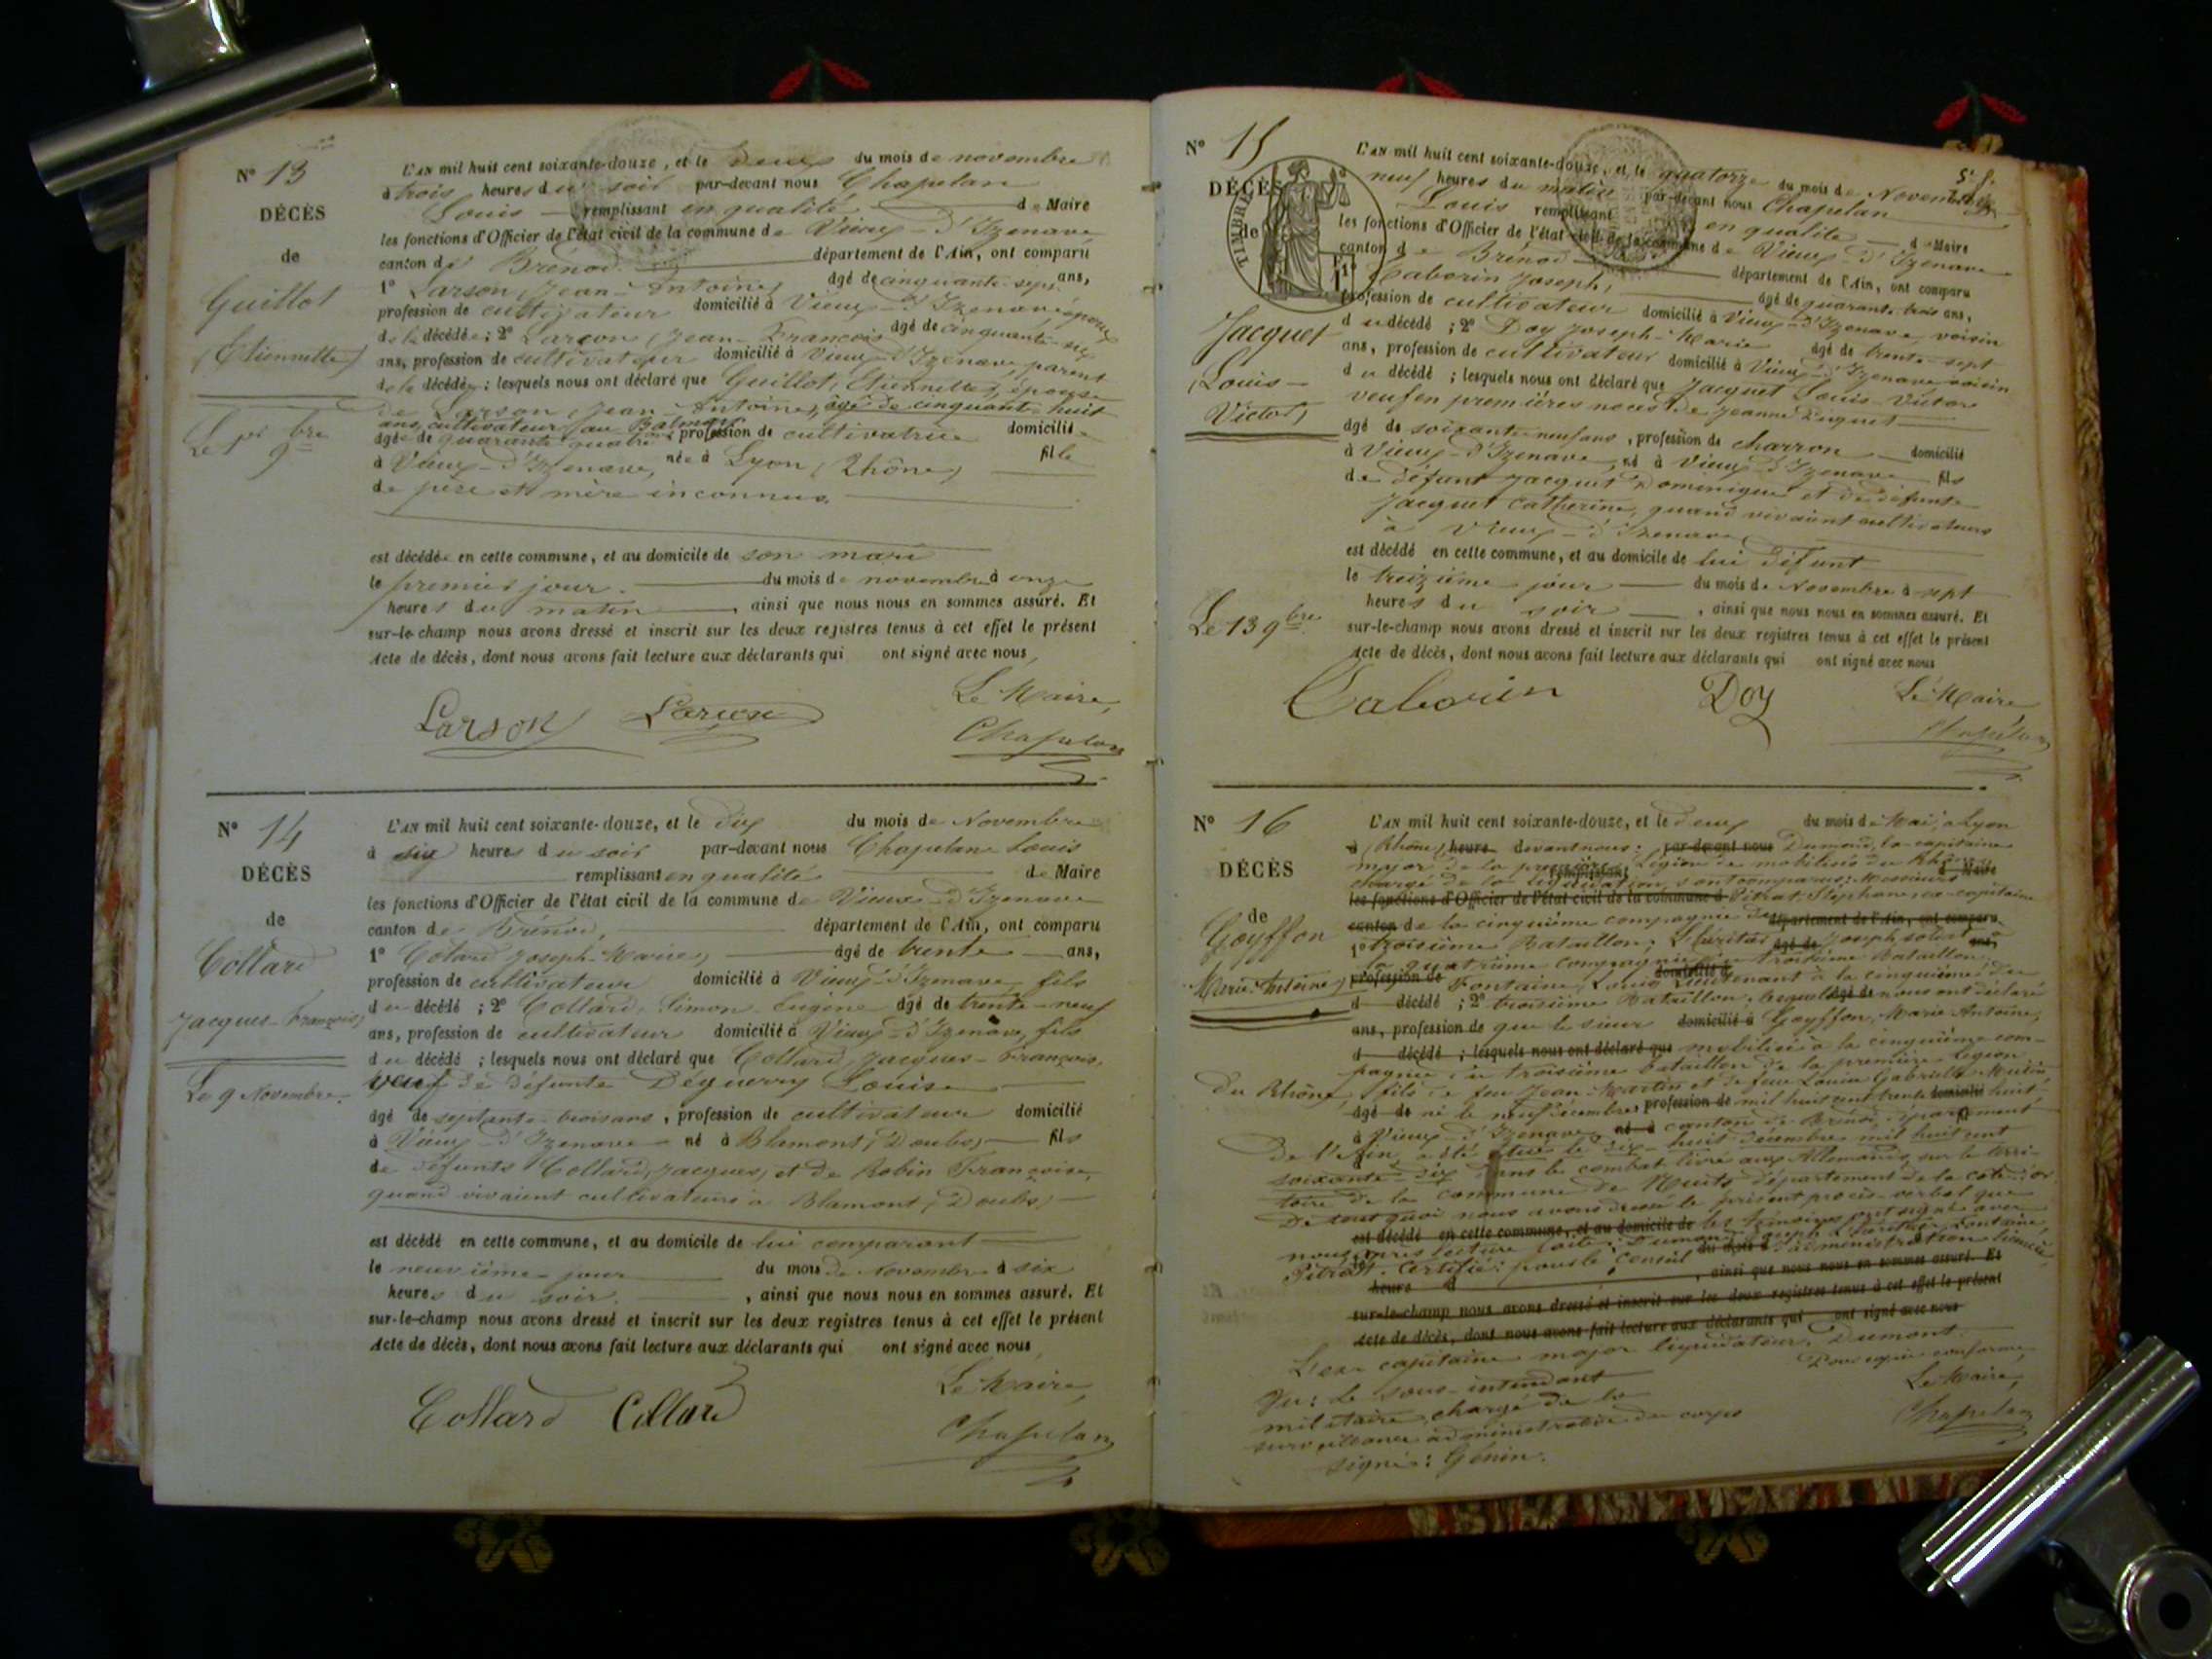 N° 13
DÉCÈS
de
Guillot
(Etiennette)
Le 1er 9bre
L'AN mil huit cent soixante-douze, et le deux du mois de novembre
à trois heures du soir par-devant nous Chapelan
Louis remplissant en qualité de Maire
les fonctions d'Officier de l'état civil de la commune de Vieux-d'Izenave
canton de Brénod département de l'Ain, ont comparu
1° Larson (Jean-Antoine) âgé de cinquante-sept ans,
profession de cultivateur domicilié à Vieux-d'Izenave, époux
de la décédée; 2° Larçon (Jean-François) âgé de cinquante-six
ans, profession de cultivateur domicilié à Vieux-d'Izenave, parent
de la décédée; lesquels nous ont déclaré que Guillot, Etiennette, épouse
de Larson (Jean-Antoine), âgé de cinquante-huit
ans, cultivateur au Balmay
âgée de quarante quatre ans, profession de cultivatrice domiciliée
à Vieux-d'Izenave, née à Lyon (Rhône) fille
de père et mère inconnus.
est décédée en cette commune, et au domicile de son mari
le premier jour du mois de novembre à onze
heures du matin, ainsi que nous nous en sommes assuré. Et
sur-le-champ nous avons dressé et inscrit sur les deux registres tenus à cet effet le présent
Acte de décès, dont nous avons fait lecture aux déclarants qui ont signé avec nous,
Le Maire,
Larson Larçon Chapelan
N° 14
DÉCÈS
de
Collard
Jacques-François
Le 9 Novembre.
L'AN mil huit cent soixante-douze, et le dix du mois de Novembre
à six heures du soir par-devant nous Chapelan Louis
remplissant en qualité de Maire
les fonctions d'Officier de l'état civil de la commune de Vieux-d'Izenave
canton de Brénod, département de l'Ain, ont comparu
1° Colard Joseph-Marie, âgé de trente ans,
profession de cultivateur domicilié à Vieux-d'Izenave, fils
du décédé; 2° Collard, Simon-Eugène âgé de trente-neuf
ans, profession de cultivateur domicilié à Vieux-d'Izenave, fils
du décédé; lesquels nous ont déclaré que Collard, Jacques-François,
veuf de défunte Déguerry Louise
âgé de septante-trois ans, profession de cultivateur domicilié
à Vieux-d'Izenave né à Blamont (Doubs) fils
de défunts Collard, Jacques, et de Robin Françoise,
quand vivaient cultivateurs à Blamont (Doubs)
est décédé en cette commune, et au domicile de lui comparant
le neuvième jour du mois de Novembre à six
heures du soir, ainsi que nous nous en sommes assuré. Et
sur-le-champ nous avons dressé et inscrit sur les deux registres tenus à cet effet le présent
Acte de décès, dont nous avons fait lecture aux déclarants qui ont signé avec nous,
Le Maire,
Collard Collard
Chapelan
N° 15
DÉCÈS
de
TIMBRE
Jacquet
(Louis-
Victor)
Le 13 9bre
L'AN mil huit cent soixante-douze, et le quatorze du mois de Novembre
neuf heures du matin par-devant nous Chapelan
Louis remplissant en qualité de Maire
les fonctions d'Officier de l'état civil de la commune de Vieux-d'Izenave
canton de Brénod département de l'Ain, ont comparu
1° Caborin Joseph, âgé de quarante-trois ans,
profession de cultivateur domicilié à Vieux-d'Izenave, voisin
du décédé; 2° Doy Joseph-Marie âgé de trente-sept
ans, profession de cultivateur domicilié à Vieux-d'Izenave voisin
du décédé; lesquels nous ont déclaré que Jacquet Louis-Victor
veuf en premières noces de Jeanne
âgé de soixante-neuf ans, profession de charron domicilié
à Vieux-d'Izenave, né à Vieux-d'Izenave fils
de défunt Jacquet Dominique et de défunte
Jacquet Catherine, quand vivaient cultivateurs
à Vieux-d'Izenave
est décédé en cette commune, et au domicile de lui défunt
le treizième jour du mois de Novembre à sept
heures du soir, ainsi que nous nous en sommes assuré. Et
sur-le-champ nous avons dressé et inscrit sur les deux registres tenus à cet effet le présent
Acte de décès, dont nous avons fait lecture aux déclarants qui ont signé avec nous
Caborin Doy Le Maire
Chapelan
N° 16
DÉCÈS
de
Goyffon
Marie-Antoine,
L'AN mil huit cent soixante-douze, et le deux du mois de Mai, à Lyon
à (Rhône) heure devant nous: par-devant nous Dumond, ex-capitaine
major de la première Légion de mobilisés du Rhône
chargé de la liquidation, sont comparus: Messieurs
les fonctions d'Officier de l'état civil de la commune d Pitrat Stéphane, ex-capitaine
canton de la cinquième compagnie du département de l'Ain, ont comparu
1° troisième Bataillon; Lhéritier âgé de Joseph, soldat ans,
à la quatrième compagnie du troisième Bataillon;
profession de Fontaine, Louis domicilié à Lieutenant à la cinquième du
d décédé; 2° troisième Bataillon, lesquels âgé de nous ont déclaré
ans, profession de que le sieur domicilié à Goyffon, Marie Antoine,
d décédé; lesquels nous ont déclaré que mobilisé à la cinquième com-
pagnie du troisième bataillon de la première Légion
du Rhône, fils de feu Jean-Martin et de feue Louise Gabrielle
âgé de né le neuf décembre profession de mil huit cent trente domicilié huit,
à Vieux-d'Izenave, né à canton de Brénod, département
De l'Ain, a été tué le dix-huit décembre mil huit cent
soixante-dix dans le combat livré aux Allemands, sur le terri-
toire de la commune de Nuits département de la Côte-d'or
De tout quoi nous avons dressé le présent procès-verbal que
est décédé en cette commune, et au domicile de les témoins ont signé avec
nous après lecture faite; Dumond, Joseph Lhéritier, Fontaine,
Pitrat. Certifié: pour le conseil du mois d d'administration
heure d, ainsi que nous nous en sommes assuré. Et
sur-le-champ nous avons dressé et inscrit sur les deux registres tenus à cet effet le présent
Acte de décès, dont nous avons fait lecture aux déclarants qui ont signé avec nous
L'ex-capitaine major liquidateur, Dumont.
Pour copie conforme,
Vu: Le sous-intendant
Le Maire,
militaire chargé de la
surveillance administrative du corps
Chapelan
signé: Génin.